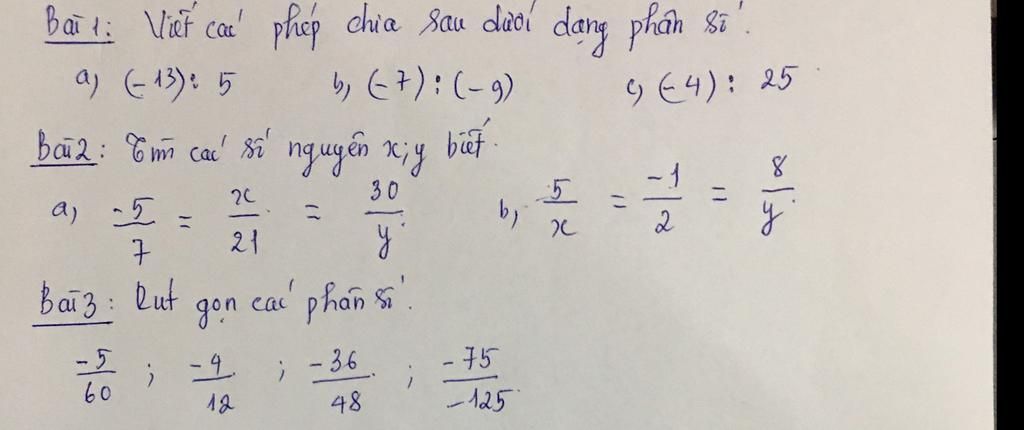 Bài 1: Viết các phép chia sau dưới dạng phân số.
a, (-13): 5 b, (-7) : (-9) c, (-4) : 25
Bài 2: Tìm các số nguyên x; y biết.
a, -5/7 = x/21 = 30/y b, 5/x = -1/2 = 8/y
Bài 3: Rút gọn các phân số.
-5/60 ; -4/12 ; -36/48 ; -75/-125